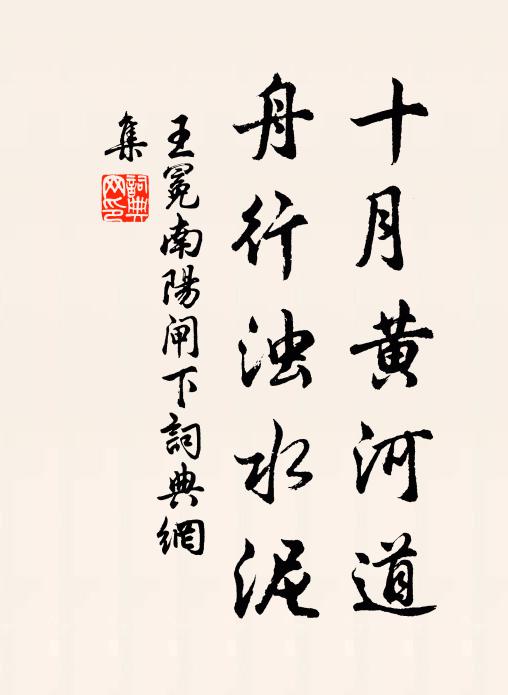 十月黄河道
舟行浊水泥
王冕南陽闸下詞典網
集
詞典
网印